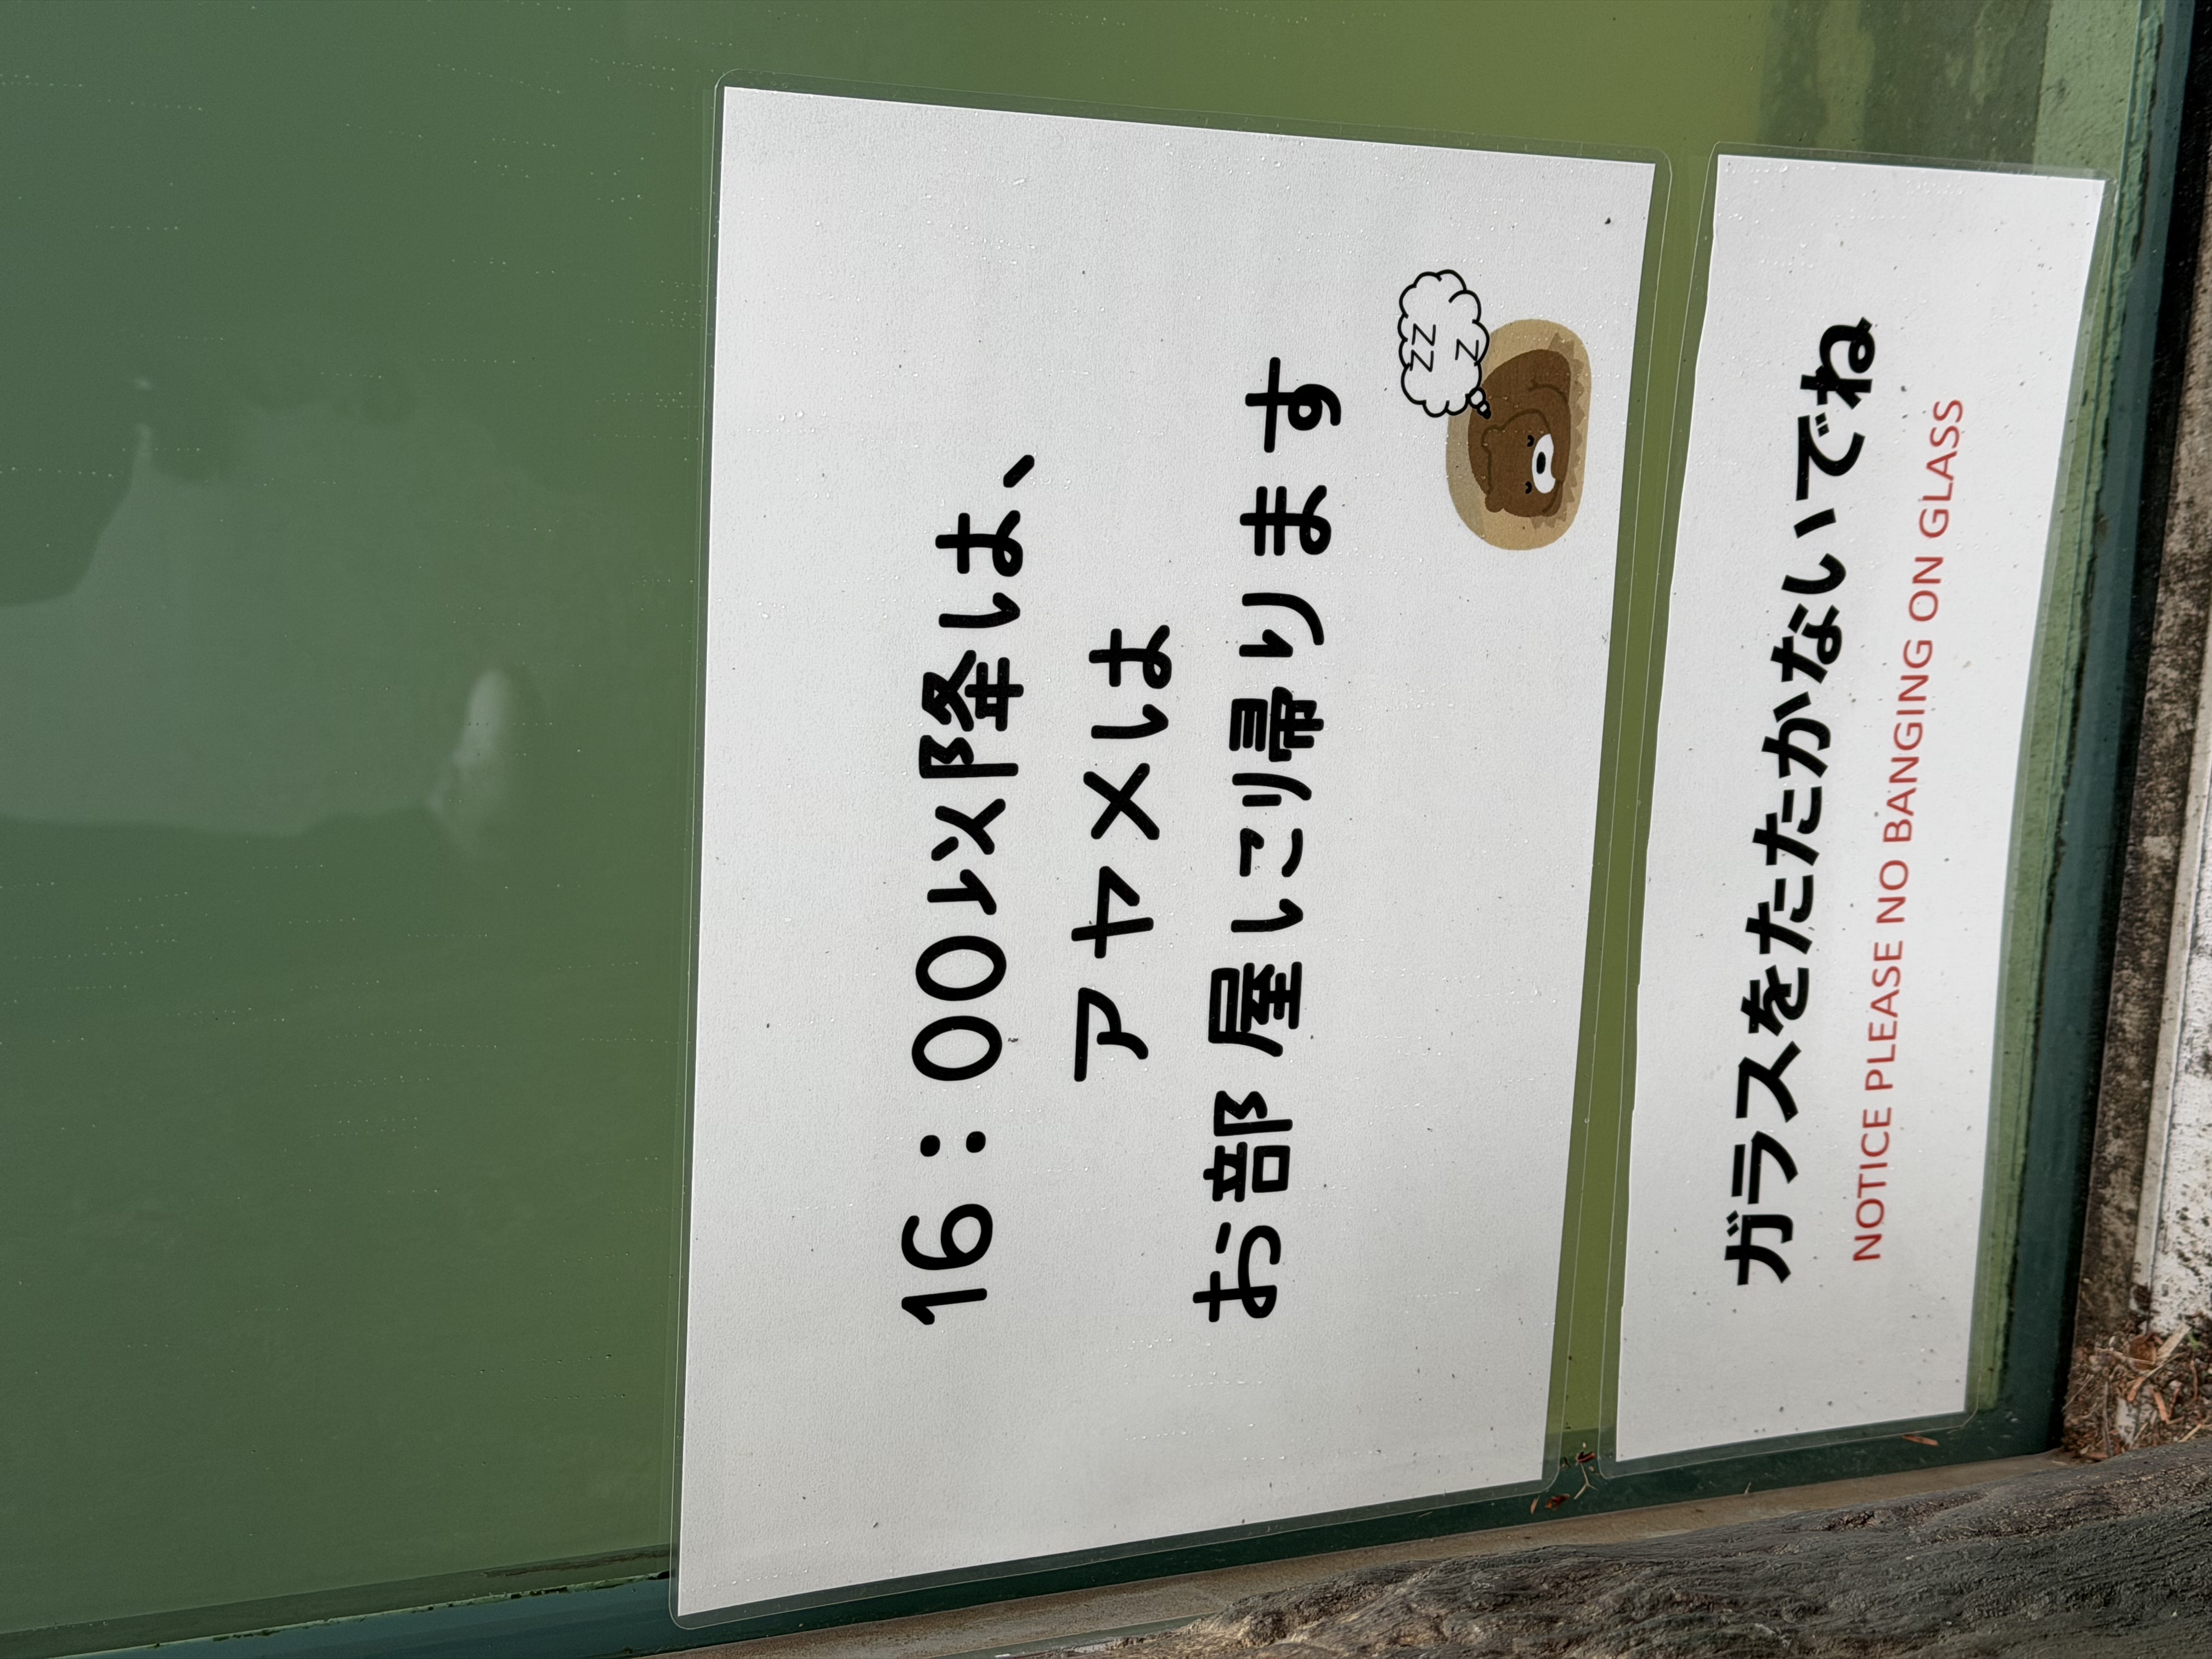 16：00以降は、
アヤメは
お部屋に帰ります
zzz
z
ガラスをたたかないでね
NOTICE PLEASE NO BANGING ON GLASS